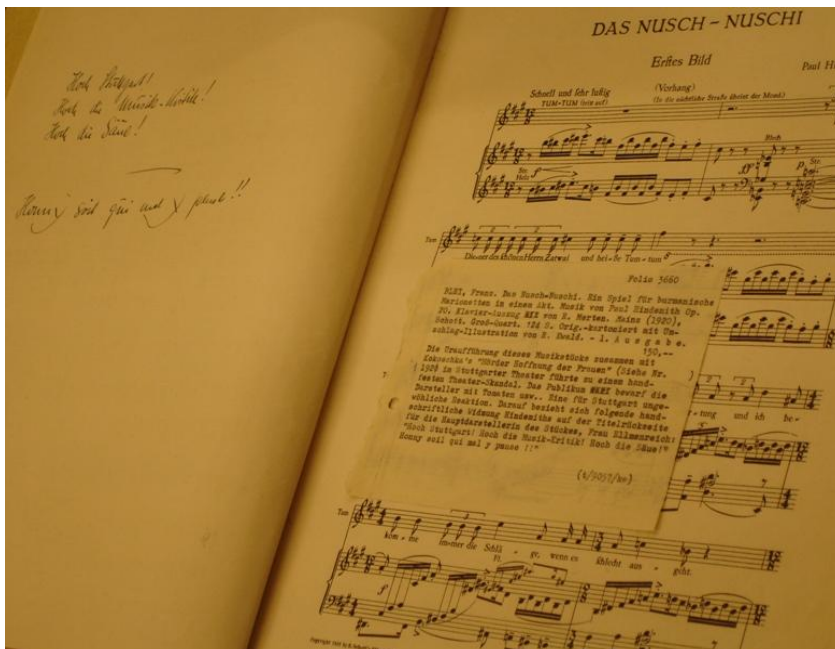 Hoch Stuttgart!
Hoch die Musik-Kritik!
Hoch die Säue!
Honny soit qui mal y pense!!
DAS NUSCH-NUSCHI
Erstes Bild
Paul H
Schnell und sehr lustig
(Vorhang)
TUM-TUM (tritt auf)
(In die nächtliche Straße übertönt der Mond)
Str.
Holz
Blech
Str.
Tum
Diener des schönen Herrn Zatwai und hei-ße Tum-tum
Folio 3660
BLEI, Franz. Das Nusch-Nuschi. Ein Spiel für burmanische
Marionetten in einem Akt. Musik von Paul Hindemith Op.
20. Klavier-Auszug von R. Merten. Mainz (1920),
Schott. Groß-Quart. Orig.-kartoniert mit Um-
schlag-Illustration von R. Ewald. - 1. Ausgabe.
150,--
Die Uraufführung dieses Musikstücks zusammen mit
Kokoschka's "Mörder Hoffnung der Frauen" (Siehe Nr. )
1920 in Stuttgarter Theater führte zu einem hand-
festen Theater-Skandal. Das Publikum bewarf die
Darsteller mit Tomaten usw.. Eine für Stuttgart unge-
wöhliche Reaktion. Darauf bezieht sich folgende hand-
schriftliche Widmung Hindemiths auf der Titelrückseite
für die Hauptdarstellerin des Stückes, Frau Ellmenreich:
"Hoch Stuttgart! Hoch die Musik-Kritik! Hoch die Säue!"
Honny soit qui mal y pense !!"
(4/9057/he)
-tung und ich be-
Tum
kom-me immer die Schlä-ge, wenn es schlecht aus-geht.
Fl.